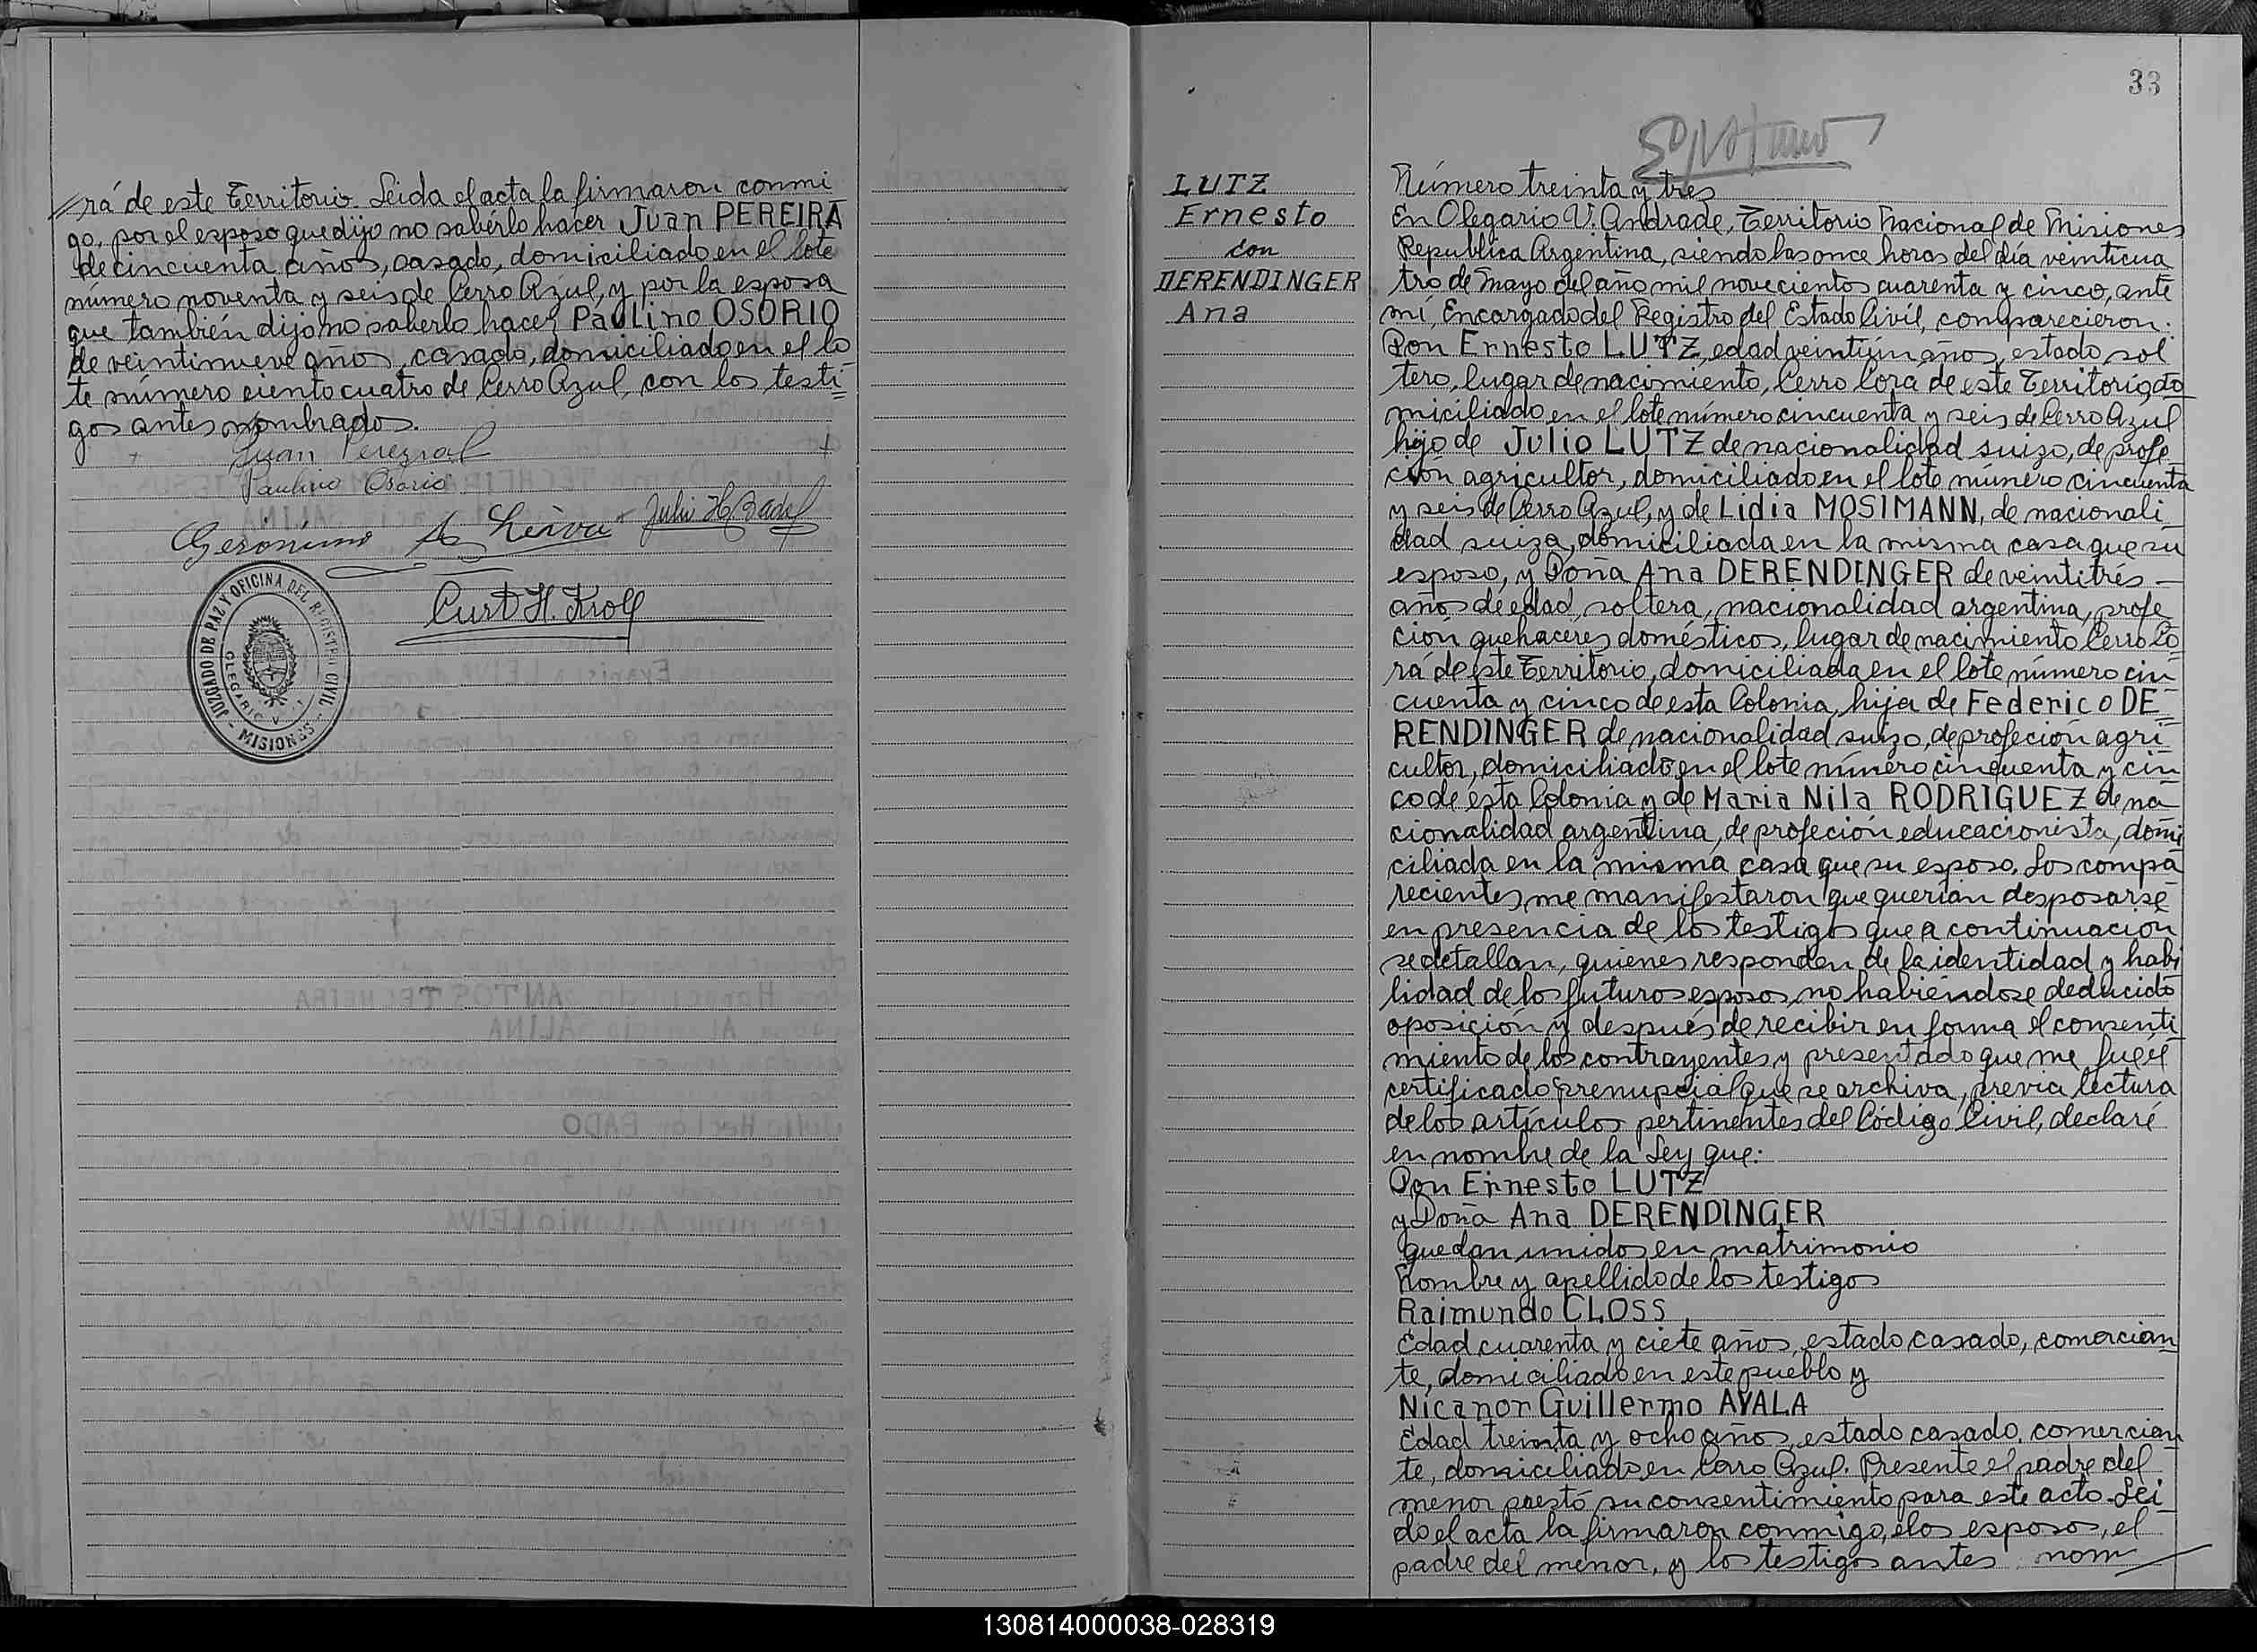 rá de este Territorio. Leida el acta la firmaron conmi
go, por el esposo que dijo no saberlo hacer Juan PEREIRA
de cincuenta años, casado, domiciliado en el lote
número noventa y seis de Cerro Azul, y por la esposa
que también dijo no saberlo hacer Paulino OSORIO
de veintinueve años, casado, domiciliado en el lo
te número ciento cuatro de Cerro Azul, con los testi=
gos antes nombrados.
+ Juan +
Paulino Osorio
Gerónimo A Leiva
Curt H. Kroll
JUZGADO DE PAZ Y OFICINA DEL REGISTRO CIVIL
OLEGARIO V.
- MISIONES -
33
LUTZ
Ernesto
con
DERENDINGER
Ana
Número treinta y tres
En Olegario V. Andrade, Territorio Nacional de Misiones
Republica Argentina, siendo las once horas del día veinticua
tro de Mayo del año mil novecientos cuarenta y cinco, ante
mí, Encargado del Registro del Estado Civil, comparecieron:
Don Ernesto LUTZ, edad veintiún años, estado sol
tero, lugar de nacimiento, Cerro Corá de este Territorio, do
miciliado en el lote número cincuenta y seis de Cerro Azul
hijo de Julio LUTZ de nacionalidad suizo, de profe
ción agricultor, domiciliado en el lote número cincuenta
y seis de Cerro Azul, y de Lidia MOSIMANN, de nacionali
dad suiza, domiciliada en la misma casa que su
esposo, y Doña Ana DERENDINGER de veintitrés —
años de edad, soltera, nacionalidad argentina, profe
ción quehaceres domésticos, lugar de nacimiento Cerro Co
rá de este Territorio, domiciliada en el lote número cin
cuenta y cinco de esta Colonia, hija de Federico DE=
RENDINGER de nacionalidad suizo, de profeción agri=
cultor, domiciliado en el lote número cincuenta y cin
co de esta Colonia y de Maria Nila RODRIGUEZ de na
cionalidad argentina, de profeción educacionista, domi
ciliada en la misma casa que su esposo. Los compa
recientes me manifestaron que querían desposarse
en presencia de los testigos que a continuación
se detallan, quienes responden de la identidad y habi
lidad de los futuros esposos, no habiendose deducido
oposición y después de recibir en forma el consenti
miento de los contrayentes y presentado que me fué el
certificado prenupcial que se archiva, previa lectura
de los artículos pertinentes del Código Civil, declaré
en nombre de la Ley que:
Don Ernesto LUTZ
y Doña Ana DERENDINGER
quedan unidos en matrimonio
Nombre y apellido de los testigos
Raimundo CLOSS
Edad cuarenta y ciete años, estado casado, comercian
te, domiciliado en este pueblo y
Nicanor Guillermo AYALA
Edad treinta y ocho años, estado casado, comercian
te, domiciliado en Cerro Azul. Presente el padre del
menor prestó su consentimiento para este acto. Lei
do el acta la firmaron conmigo, los esposos, el
padre del menor, y los testigos antes nom
130814000038-028319